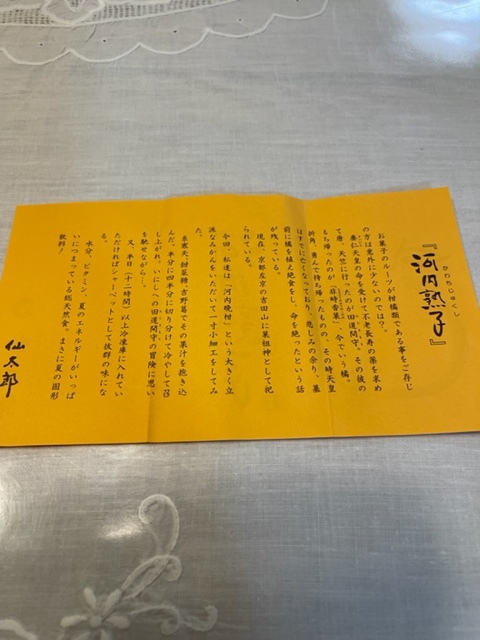 『河内熟子』
かわちじゅくし
お菓子のルーツが柑橘類である事をご存じ
の方は意外に少ないのでは?。
垂仁天皇の命を受けて不老長寿の薬を求め
て唐、天竺に行ったのが田道間守。その彼の
もち帰ったのが「非時香菓」、今でいう橘。
折角、勇んで持ち帰ったものの、その時天皇
は下でに亡くなっており、悲しみの余り、墓
前に橘を植え絶食をし、命を絶ったという話
が残っている。
現在、京都左京の吉田山に菓祖神として祀
られている。
今回、私達は「河内晩柑」という大きく立
派なみかんをいただいて一寸小細工をしてみ
た。
糸寒天、材菜糖、吉野葛でその果汁を抱き込
んだ。半分に四半分に切り分けて冷やして召
し上がれ。いにしへの田道間守の冒険に思い
を馳せながら…。
又、半日(十二時間)以上冷凍庫に入れてい
ただければシャーベットとして抜群の味にな
る。
味分、ビタミン、夏のエネルギーがいっぱ
いにつまっている総天然食。まさに夏の固形
飲料!
仙太郎